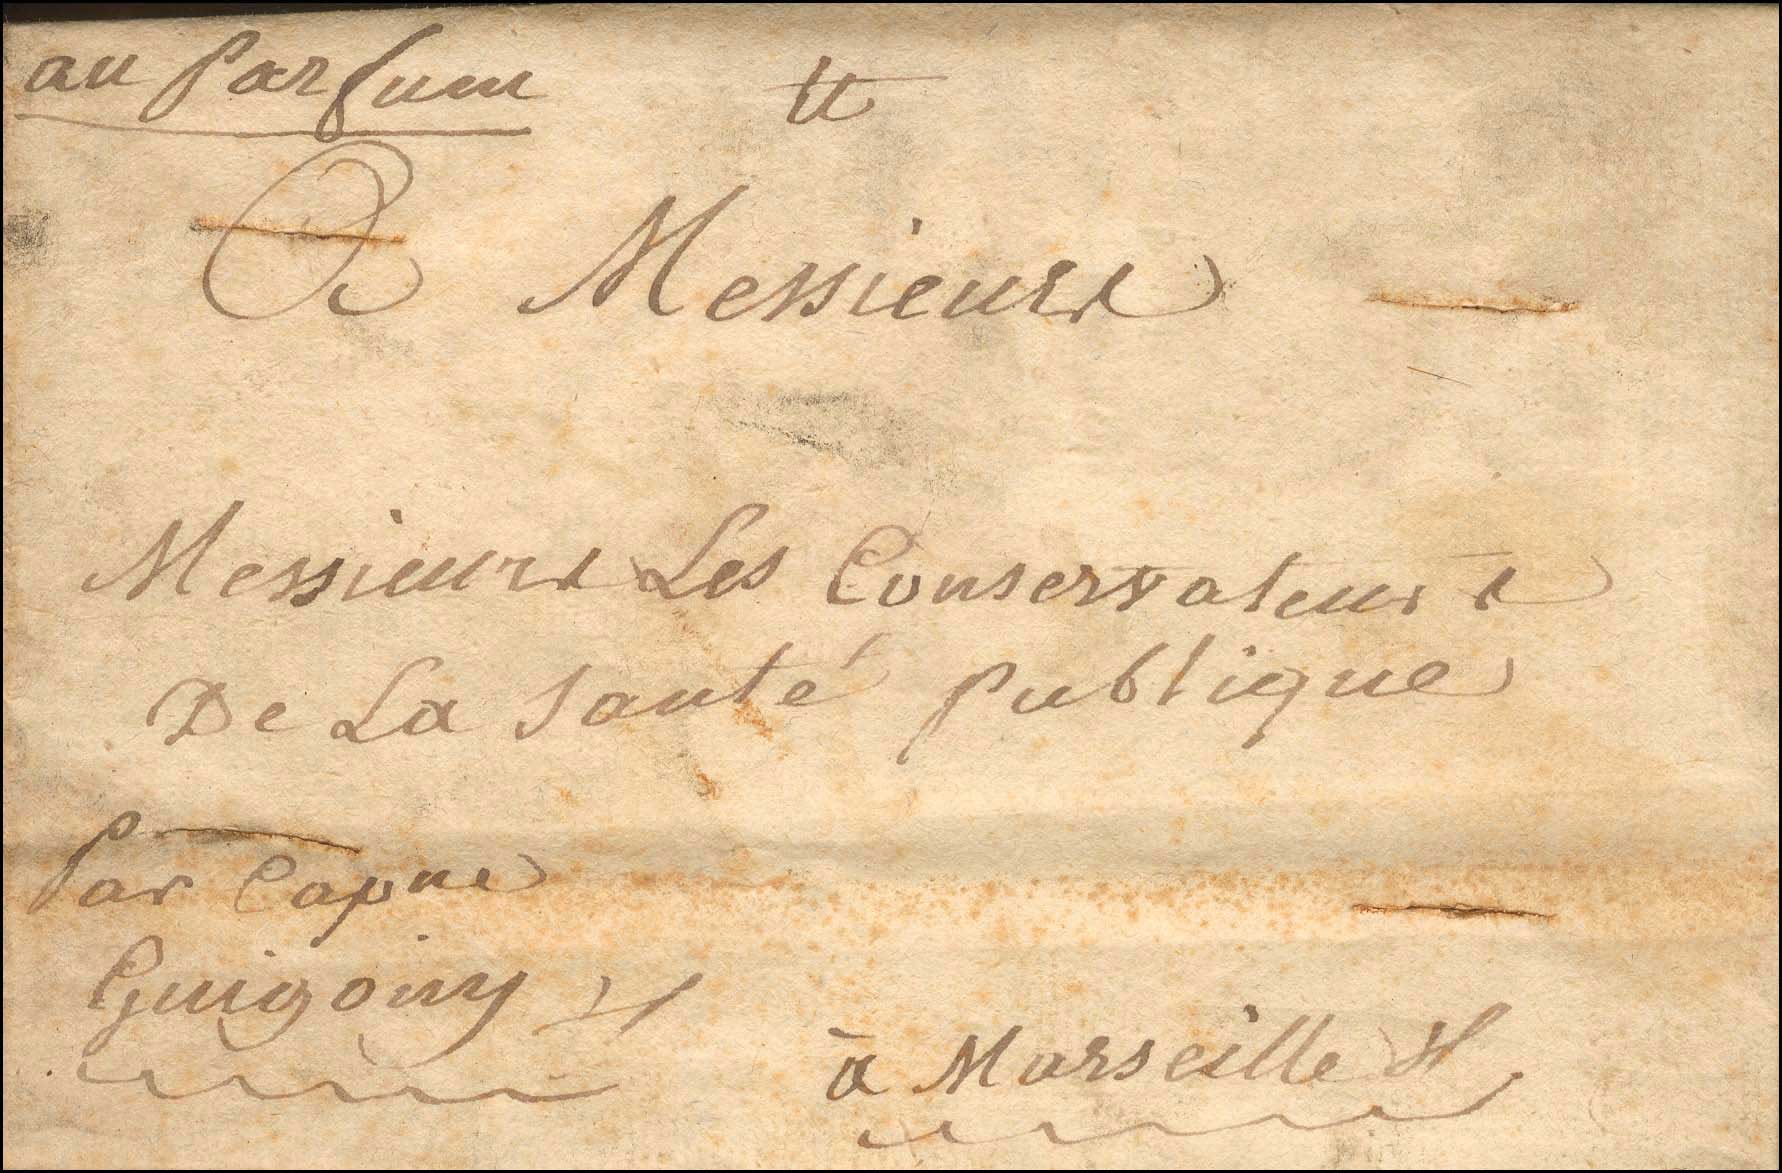 au Parfum
A Messieurs
Messieurs Les Conservateurs
De La Santé Publique
Par Capne
Guigoiny
à Marseille